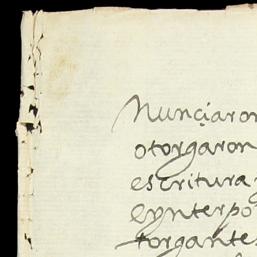 Nunçiaron
otorgaron
escritura
eynterpo
torgantes